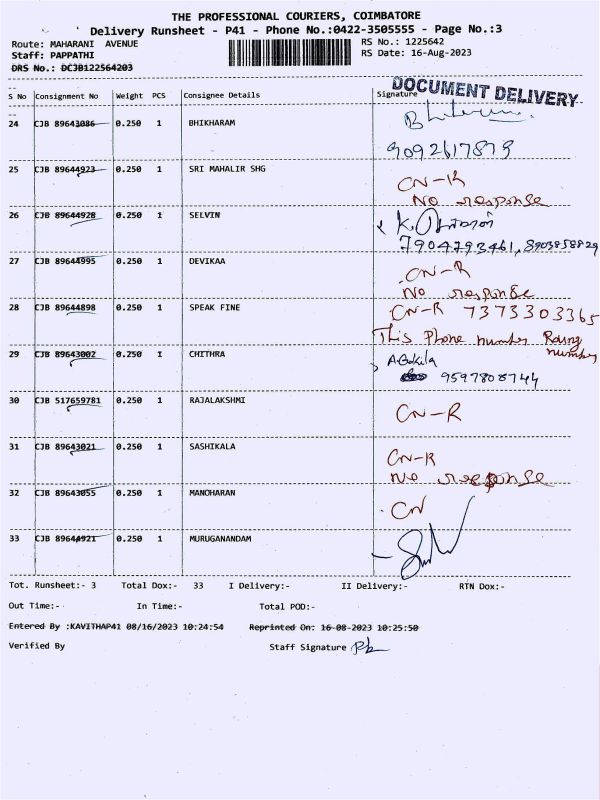 THE PROFESSIONAL COURIERS, COIMBATORE
Delivery Runsheet - P41 - Phone No.:0422-3505555 - Page No.:3
Route: MAHARANI AVENUE RS No.: 1225642
Staff: PAPPATHI RS Date: 16-Aug-2023
DRS No.: DCJB122564203
DOCUMENT DELIVERY
S No Consignment No Weight PCS Consignee Details Signature
24 CJB 89643086 0.250 1 BHIKHARAM
9092617879
25 CJB 89644923 0.250 1 SRI MAHALIR SHG CN-R
No response
26 CJB 89644928 0.250 1 SELVIN
7904293461, 8903858829
27 CJB 89644995 0.250 1 DEVIKAA CN-R
No response
28 CJB 89644898 0.250 1 SPEAK FINE CN-R 7373303365
This Phone number Roung number
29 CJB 89643002 0.250 1 CHITHRA A.Gokila
9597808744
30 CJB 517659781 0.250 1 RAJALAKSHMI CN-R
31 CJB 89643021 0.250 1 SASHIKALA CN-R
No response
32 CJB 89643055 0.250 1 MANOHARAN CN
33 CJB 89644921 0.250 1 MURUGANANDAM
Tot. Runsheet:- 3 Total Dox:- 33 I Delivery:- II Delivery:- RTN Dox:-
Out Time:- In Time:- Total POD:-
Entered By :KAVITHAP41 08/16/2023 10:24:54 Reprinted On: 16-08-2023 10:25:50
Verified By Staff Signature